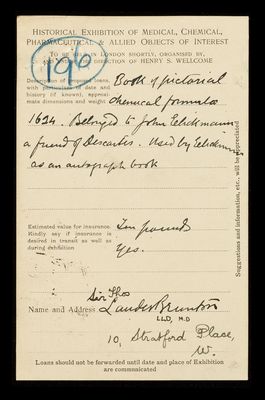 HISTORICAL EXHIBITION OF MEDICAL, CHEMICAL,
PHARMACEUTICAL & ALLIED OBJECTS OF INTEREST
TO BE HELD IN LONDON SHORTLY, ORGANISED BY,
AND UNDER THE DIRECTION OF HENRY S. WELLCOME
196
Description of proposed loans,
with particulars of date and
history (if known), approxi-
mate dimensions and weight
Book of pictorial
chemical formulae
1624. Belonged to John Elichmann
a friend of Descartes. Used by Elichmann
as an autograph book
Suggestions and information, etc., will be appreciated
Estimated value for insurance.
Kindly say if insurance is
desired in transit as well as
during exhibition
Ten pounds
Yes.
Name and Address
Sir Thos
Lauder Brunton
LL.D, M.D
10, Stratford Place,
W.
Loans should not be forwarded until date and place of Exhibition
are communicated